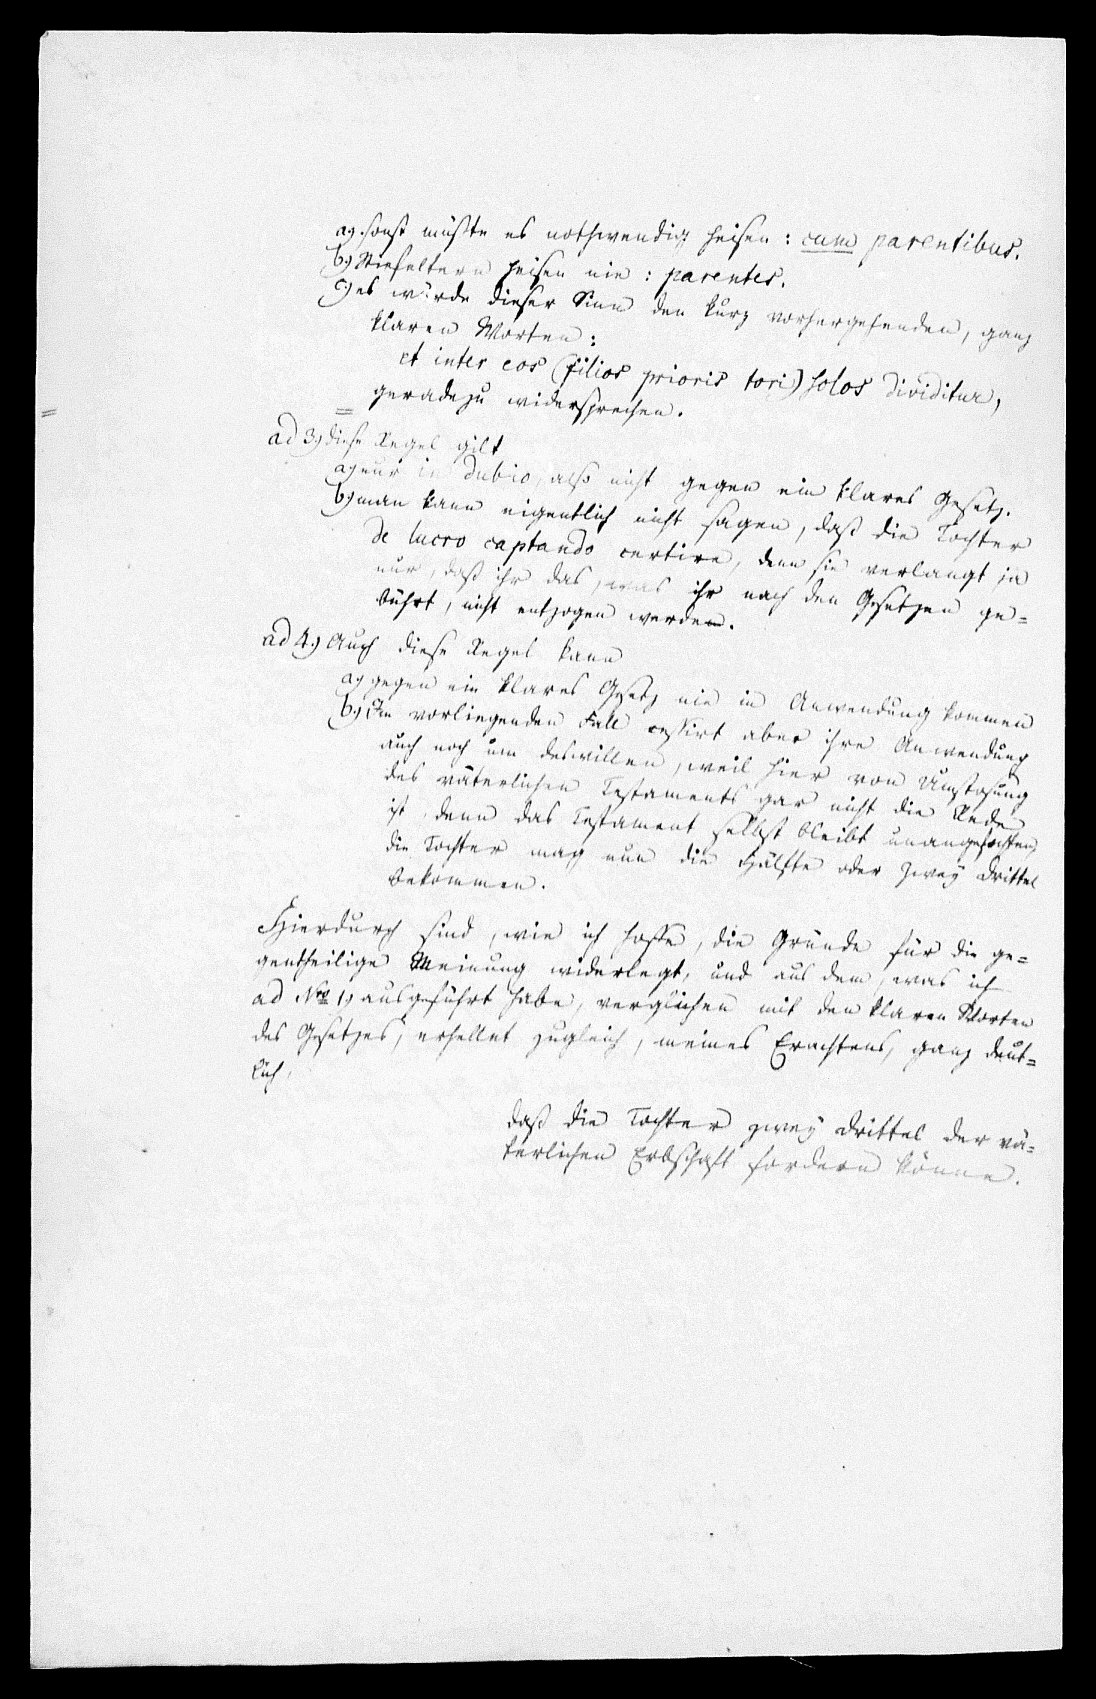 a). sonst müßte es nothwendig heisen: cum parentibus.
b) Stiefeltern heisen nie: parentes.
c) es würde dieser Sinn den kurz vorhergehenden, ganz
klaren Worten:
et inter eos (filios prioris tori) solos dividitur,
geradezu widersprechen.
ad 3) diese Regel gilt
a) nur in dubio, also nicht gegen ein klares Gesetz.
b) man kann eigentlich nicht sagen, daß die Tochter
de lucro captando certire, denn sie verlangt ja
nur, daß ihr das, was ihr nach den Gesetzen ge=
bührt, nicht entzogen werde.
ad 4.) Auch diese Regel kann
a) gegen ein klares Gesetz nie in Anwendung kommen
b) Im vorliegenden Fall cessirt aber ihre Anwendung
auch noch um deswillen, weil hier von Umstosung
des väterlichen Testaments gar nicht die Rede
ist, denn das Testament selbst bleibt unangefochten,
die Tochter mag nun die Hälfte oder zwey Drittel
bekommen.
Hierdurch sind, wie ich hoffe, die Gründe für die ge=
gentheilige Meinung widerlegt, und aus dem, was ich
ad Nro 1) ausgeführt habe, verglichen mit den klaren Worten
des Gesetzes, erhellet zugleich, meines Erachtens, ganz deut=
lich,
daß die Tochter zwey Drittel der vä=
terlichen Erbschaft fordern könne.